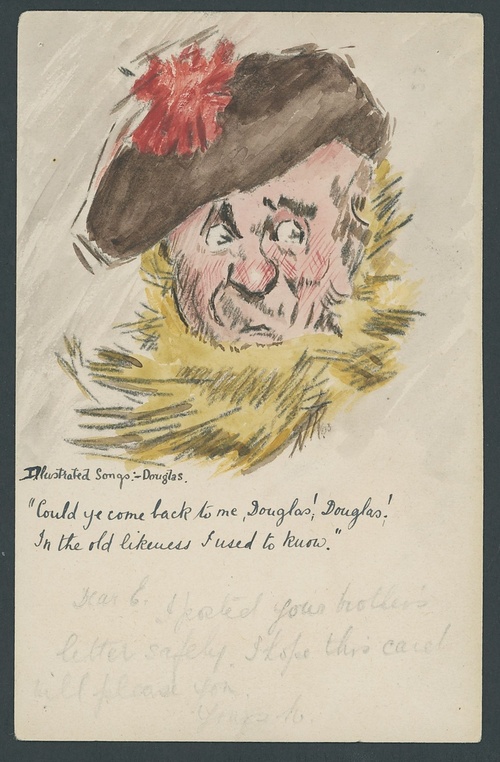 Illustrated Songs:- Douglas.
"Could ye come back to me, Douglas!, Douglas!
In the old likeness I used to know."
Dear E. I posted your brother's
letter safely. I hope this card
will please you.
Yours